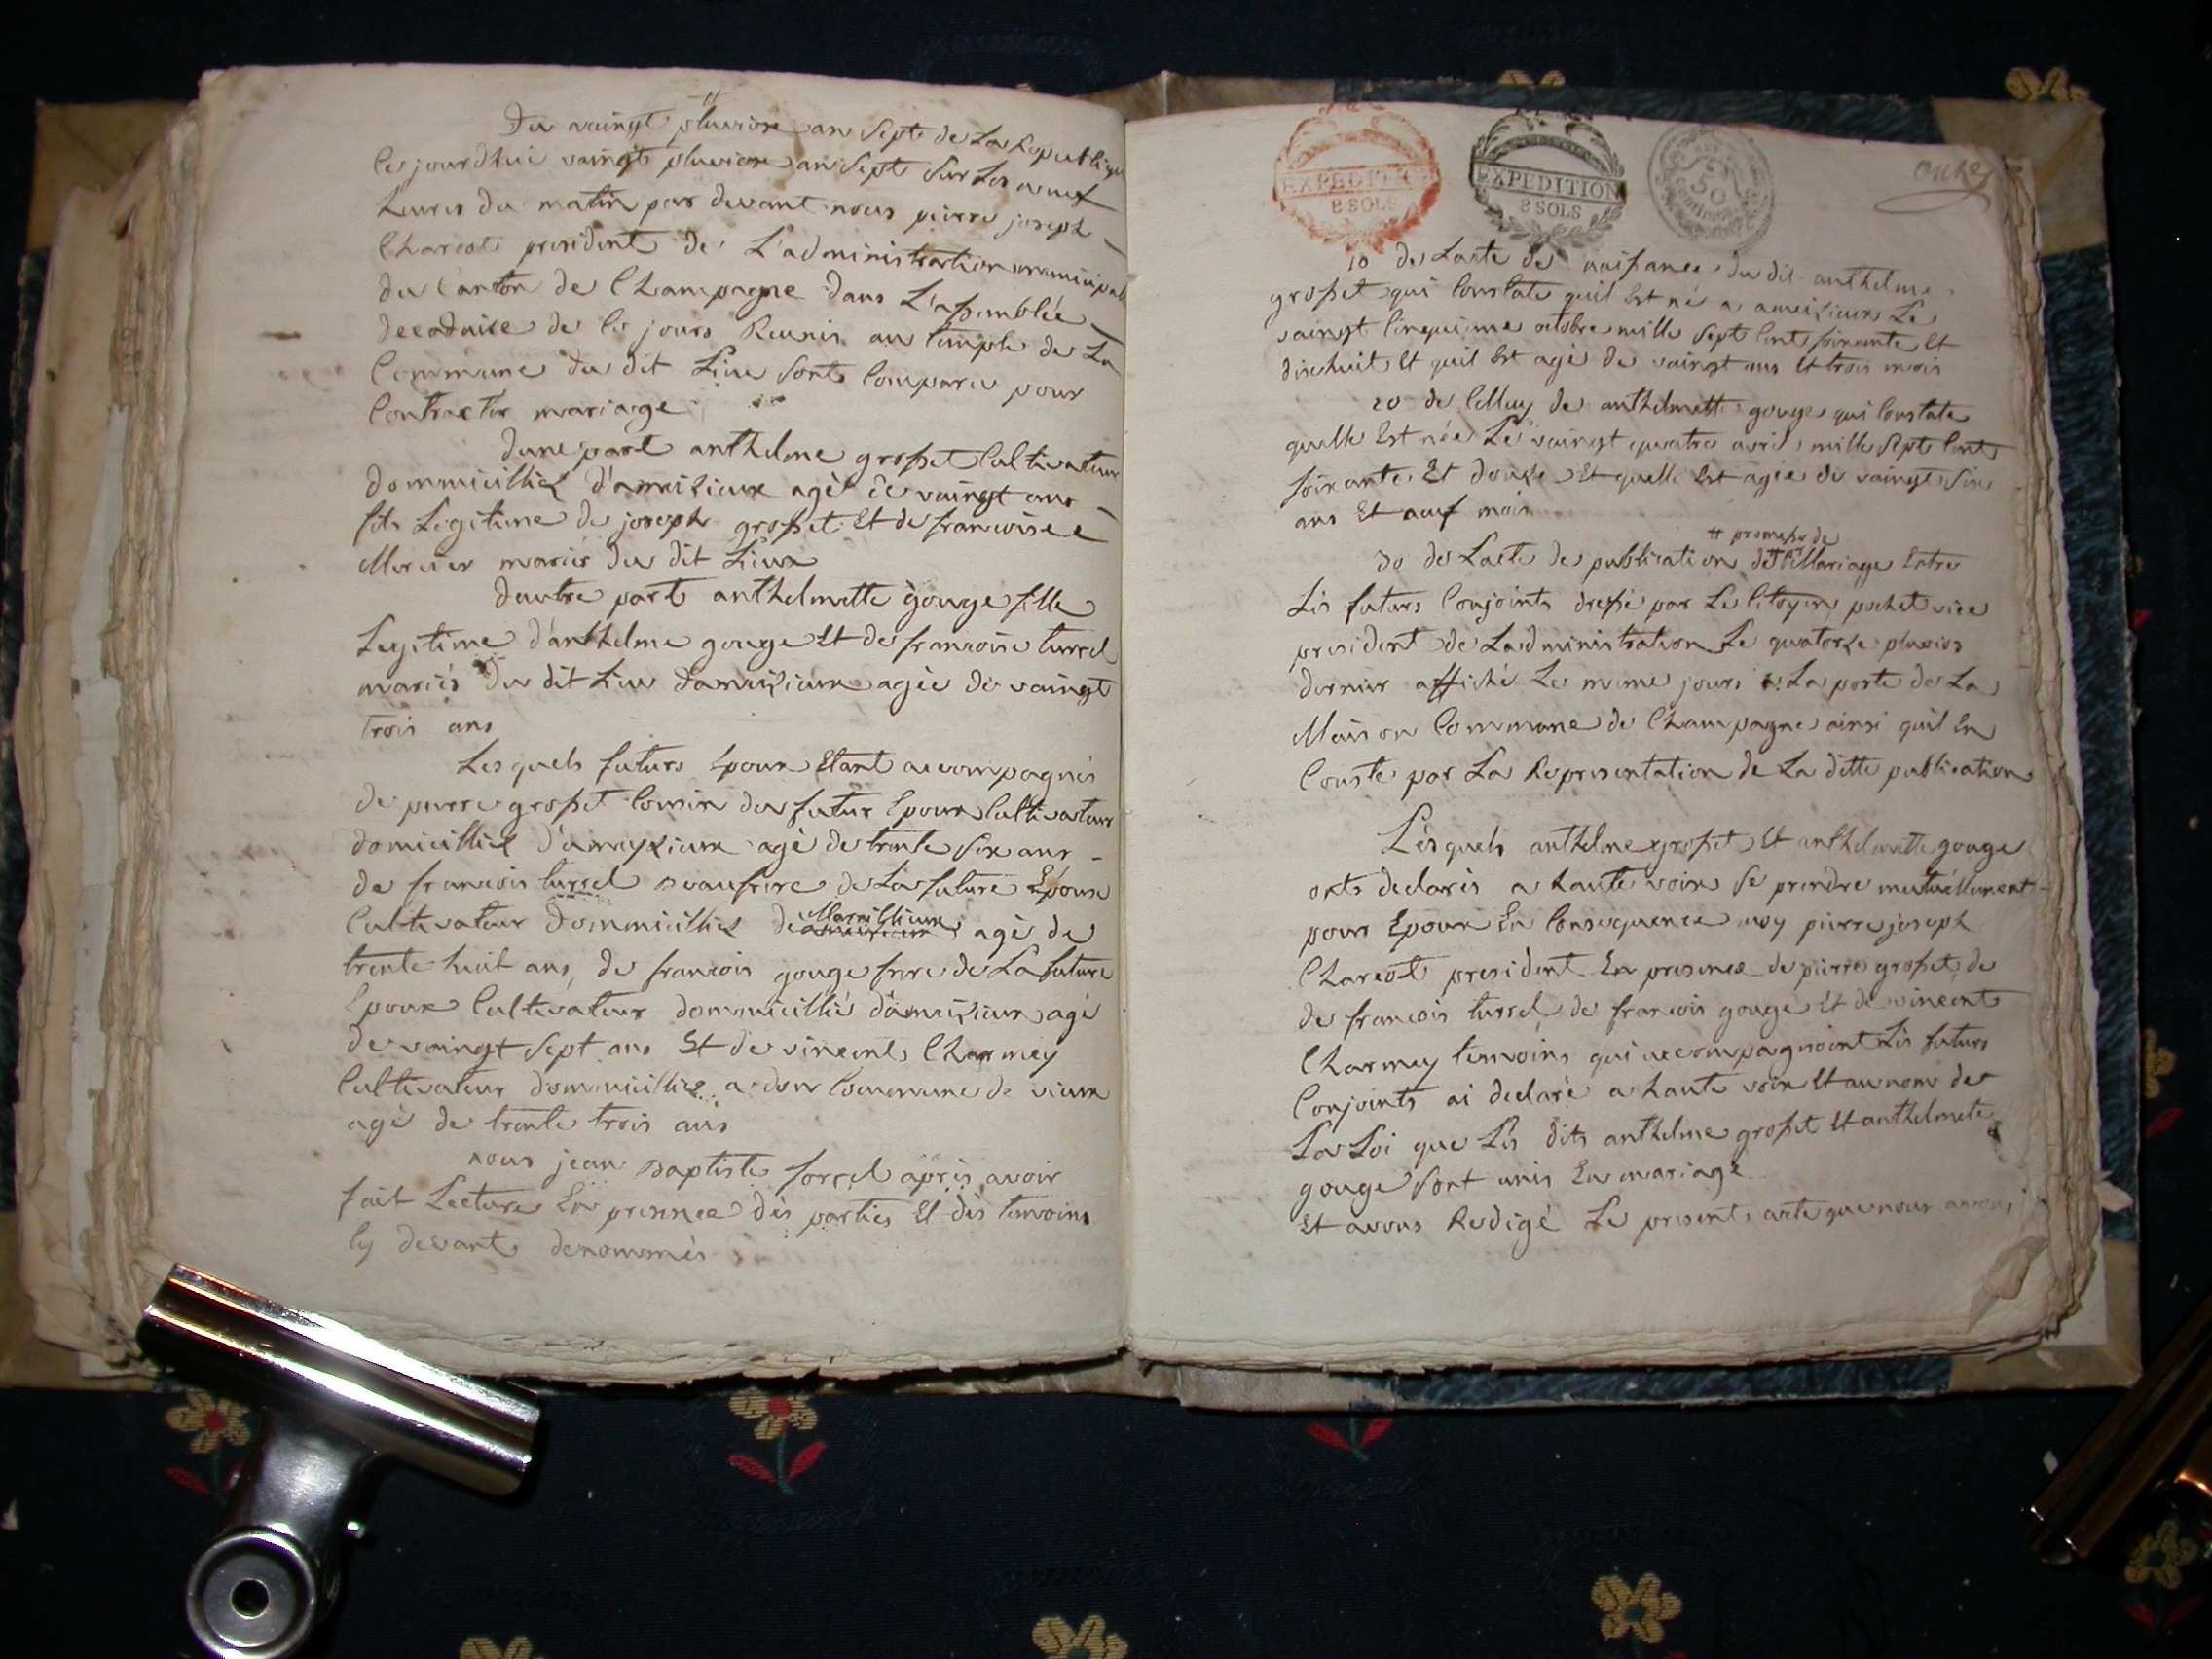 Du vaingt pluviose an Sept de La Republique
Ce jourdhui vaingt pluviose an Sept Sur Les neuf
heures du matin par devant nous pierre joseph
Charcot president de L'administration municipale
du Canton de Champagne dans L'assemblée
decadaire de Ce jours Reunis au temple de La
Commune du dit Lieu Sont Comparu pour
Contracter mariage
dune part anthelme grosset Cultivateur
dommicillié d'ameizieux agé de vaingt ans
fils Legitime de joseph grosset Et de francoise
Mercier mariés du dit Lieux
dautre part anthelmette gouge fille
Legitime d'anthelme gouge Et de francoise turrel
mariés du dit Lieu dameizieux agée de vaingt
trois ans
Les quels futurs Epoux Etant accompagnés
de pierre grosset Cousin du futur Epoux Cultivateur
domicillié d'ameyzieux agé de trente Six ans
de francois turrel beaufrere de La future Epouse
Cultivateur dommicillié de Marnillieux agé de
trente huit ans, de francois gouge frere de La future
Epoux Cultivateur dommicillié d'ameizieux agé
de vaingt Sept ans Et de vincent Charmey
Cultivateur dommicillié a don Commune de vieux
agé de trente trois ans
nous jean baptiste forrel après avoir
fait Lecture En presence des parties Et des temoins
Cy devant denommés
EXPEDITION
8 SOLS
EXPEDITION
8 SOLS
50
onze
10 de Lacte de naissance du dit anthelme
grosset qui Constate quil Est né a ameizieux Le
vaingt Cinquieme octobre mille Sept Cent soixante Et
dixhuit Et quil Est agé de vaingt ans Et trois mois
20 de Celluy de anthelmette gouge qui Constate
quelle Est née Le vaingt quatre avril mille Sept Cent
soixante Et douze Et quelle Est agée de vaingt Six
ans Et neuf mois
# promesse de
30 de Lacte de publication de # Mariage Entre
Les futurs Conjoints dressé par Le Citoyen pochet vice
president de Ladministration Le quatorze pluvios
dernier affiché Le meme jours a La porte de La
Maison Commune de Champagne ainsi quil En
Conste par La Representation de La ditte publication
Lesquels anthelme grosset Et anthelmette gouge
onts declarés a haute voix Se prendre mutuellement
pours Epoux En Consequence moy pierre joseph
Charcot president En presence de pierre grosset de
de francois turrel, de francois gouge Et de vincent
Charmey temoins qui accompagnoint Les futurs
Conjoints ai declaré a haute voix Et au nom de
La Loi que Les dits anthelme grosset Et anthelmete
gouge Sont unis En mariage
Et avons Redigé Le present acte que nous avons